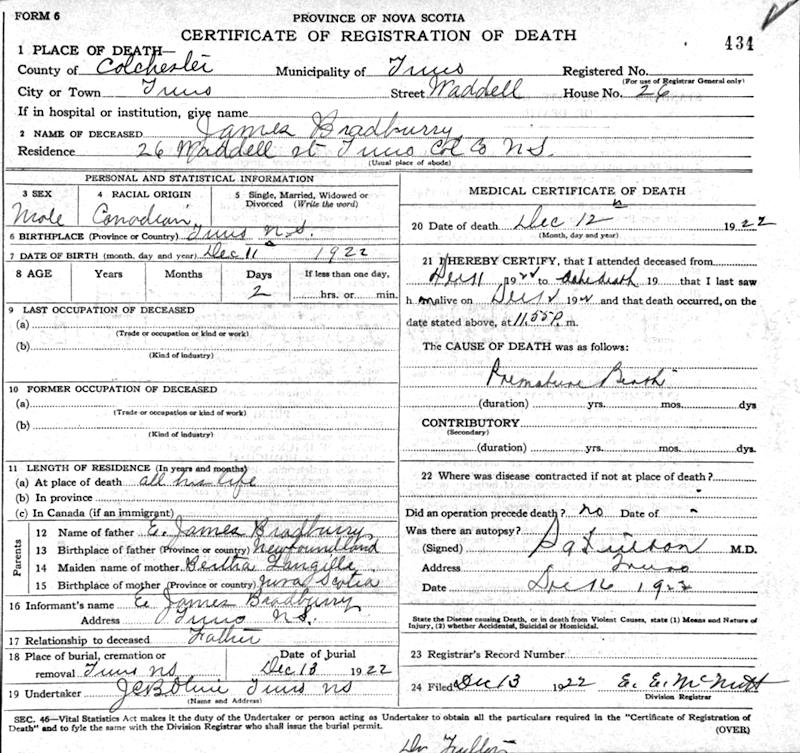 FORM 6
PROVINCE OF NOVA SCOTIA
CERTIFICATE OF REGISTRATION OF DEATH
434
1 PLACE OF DEATH—
County of Colchester Municipality of Truro Registered No.
(For use of Registrar General only)
City or Town Truro Street Waddell House No. 26
If in hospital or institution, give name
2 NAME OF DECEASED James Bradburry
Residence 26 Waddell st Truro Col Co N.S.
(Usual place of abode)
PERSONAL AND STATISTICAL INFORMATION
3 SEX 4 RACIAL ORIGIN 5 Single, Married, Widowed or Divorced (Write the word)
Male Canadian
6 BIRTHPLACE (Province or Country) Truro N.S.
7 DATE OF BIRTH (month, day and year) Dec 11 1922
8 AGE Years Months Days If less than one day,
2 hrs. or min.
9 LAST OCCUPATION OF DECEASED
(a)
(Trade or occupation or kind or work)
(b)
(Kind of industry)
10 FORMER OCCUPATION OF DECEASED
(a)
(Trade or occupation or kind of work)
(b)
(Kind of industry)
11 LENGTH OF RESIDENCE (In years and months)
(a) At place of death all his life
(b) In province
(c) In Canada (if an immigrant)
Parents
12 Name of father E. James Bradburry
13 Birthplace of father (Province or country) Newfoundland
14 Maiden name of mother Bertha Langille
15 Birthplace of mother (Province or country) Nova Scotia
16 Informant's name E. James Bradburry
Address Truro N.S.
17 Relationship to deceased Father
18 Place of burial, cremation or Date of burial
removal Truro NS Dec 13 1922
19 Undertaker Truro NS
(Name and Address)
MEDICAL CERTIFICATE OF DEATH
20 Date of death Dec 12 1922
(Month, day and year)
21 I HEREBY CERTIFY, that I attended deceased from
Dec 11 1922 to death 19 that I last saw
h m alive on Dec 12 1922 and that death occurred, on the
date stated above, at 11.55 P. m.
The CAUSE OF DEATH was as follows:
Premature Birth
(duration) yrs. mos. dys
CONTRIBUTORY
(Secondary)
(duration) yrs. mos. dys
22 Where was disease contracted if not at place of death?
Did an operation precede death? no Date of
Was there an autopsy?
(Signed) M.D.
Address Truro
Date Dec 16 1922
State the Disease causing Death, or in death from Violent Causes, state (1) Means and Nature of
Injury, (2) whether Accidental, Suicidal or Homicidal.
23 Registrar's Record Number
24 Filed Dec 13 1922 E. E. McNutt
Division Registrar
SEC. 46—Vital Statistics Act makes it the duty of the Undertaker or person acting as Undertaker to obtain all the particulars required in the "Certificate of Registration of
Death" and to fyle the same with the Division Registrar who shall issue the burial permit.
(OVER)
Dr